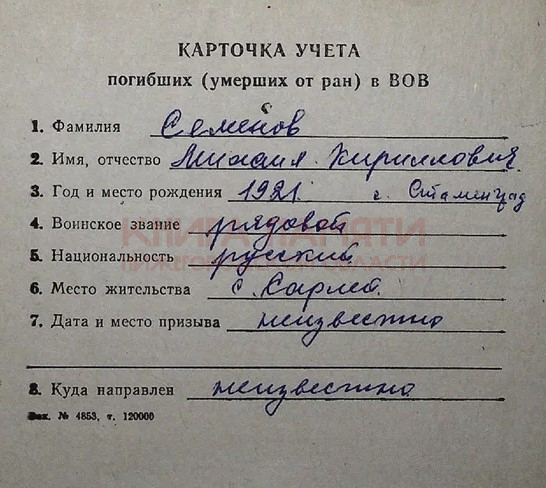 КАРТОЧКА УЧЕТА
погибших (умерших от ран) в ВОВ
1. Фамилия Семенов
2. Имя, отчество Михаил Кириллович
3. Год и место рождения 1921. г. Сталинград
4. Воинское звание рядовой
КНИГА ПАМЯТИ
5. Национальность русский
НИЖЕГОРОДСКОЙ ОБЛАСТИ
6. Место жительства с. Сарма
7. Дата и место призыва неизвестно
8. Куда направлен неизвестно
Зак. № 4853, т. 120000